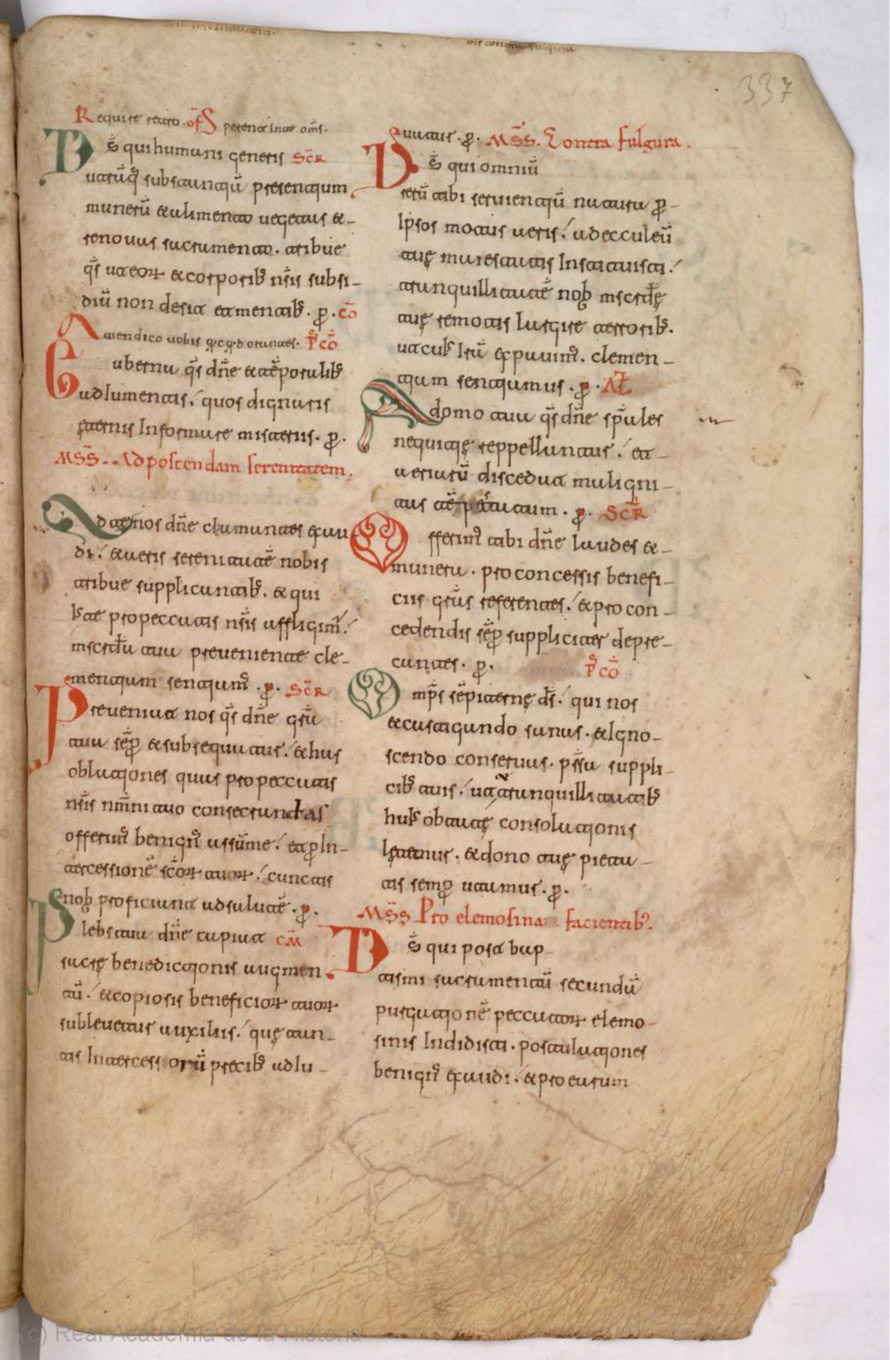 Require retro. of Sperent in te om̄s.
D̄s qui humani generis SCR
utrūq substantiā presentium
munerū & alimento uegetas &-
renouas sacramento. tribue
q̄s ut eor & corporib nr̄is subsi-
diū non desit et mentib. p. cō
Amen dico uobis qcqd orantes. P̄ CŌ
Guberna q̄s dn̄e & tēporalib
adiumentis quos dignaris
ęternis Informare misteriis. p.
MS̄S. Ad poscendam serenitatem.
Ad te nos dn̄e clamantes exau
di. & aeris serenitatē nobis
tribue supplicantib. & qui
iuste pro peccatis nr̄is affligim̄.
mscrdia tua preueniente cle-
mentiam sentiam̄. p. SCR
Preueniat nos q̄s dn̄e gr̄a
tua sēp & subsequatur. & has
oblationes quas pro peccatis
nr̄is nm̄ni tuo consecrandas
offerim̄ benign̄ assūme. et p In-
tercessionē sc̄or tuor. cunctis
nob proficiant ad salutē. p.
Plebs tua dn̄e capiat CM̄
sacrę benedictionis augmen
tū. & copiosis beneficior tuor
subleuetur auxiliis. quę tan-
tis Intercessorū precib adiu-
uatur. p. MS̄S. Contra fulgura.
D̄s qui omniū
rerū tibi seruientiū natura p-
Ipsos motus aeris. ad cultū
tuę maiestatis Instituisti.
tranquillitatē nob mscrdię
tuę remotis largire terrorib.
ut cuius irā expauim̄. clemen-
tiam sentiamus. p. AŁ
A domo tua q̄s dn̄e sp̄ales
nequitię reppellantur. et-
aeriarū discedat maligni-
tas tēpestatum. p. SCR
Offerim̄ tibi dn̄e laudes &-
munera. pro concessis benefi-
ciis gr̄as referentes. & pro con-
cedendis sēp suppliciter depre-
cantes. p. P̄ CŌ
Omp̄s sēpiternę d̄s. qui nos
& castigando sanas. & Igno-
scendo conseruas. pr̄sta suppli-
cib tuis. ut & tranquillitatib
huius obtatę consolationis
lętemur. & dono tuę pieta-
tis semp utamur. p.
MS̄S Pro elemosina facientib.
D̄s qui post bap
tismi sacramentū secundā
purgationē peccator elemo-
sinis Indidisti. postulationes
benign̄ exaudi. & pro earum